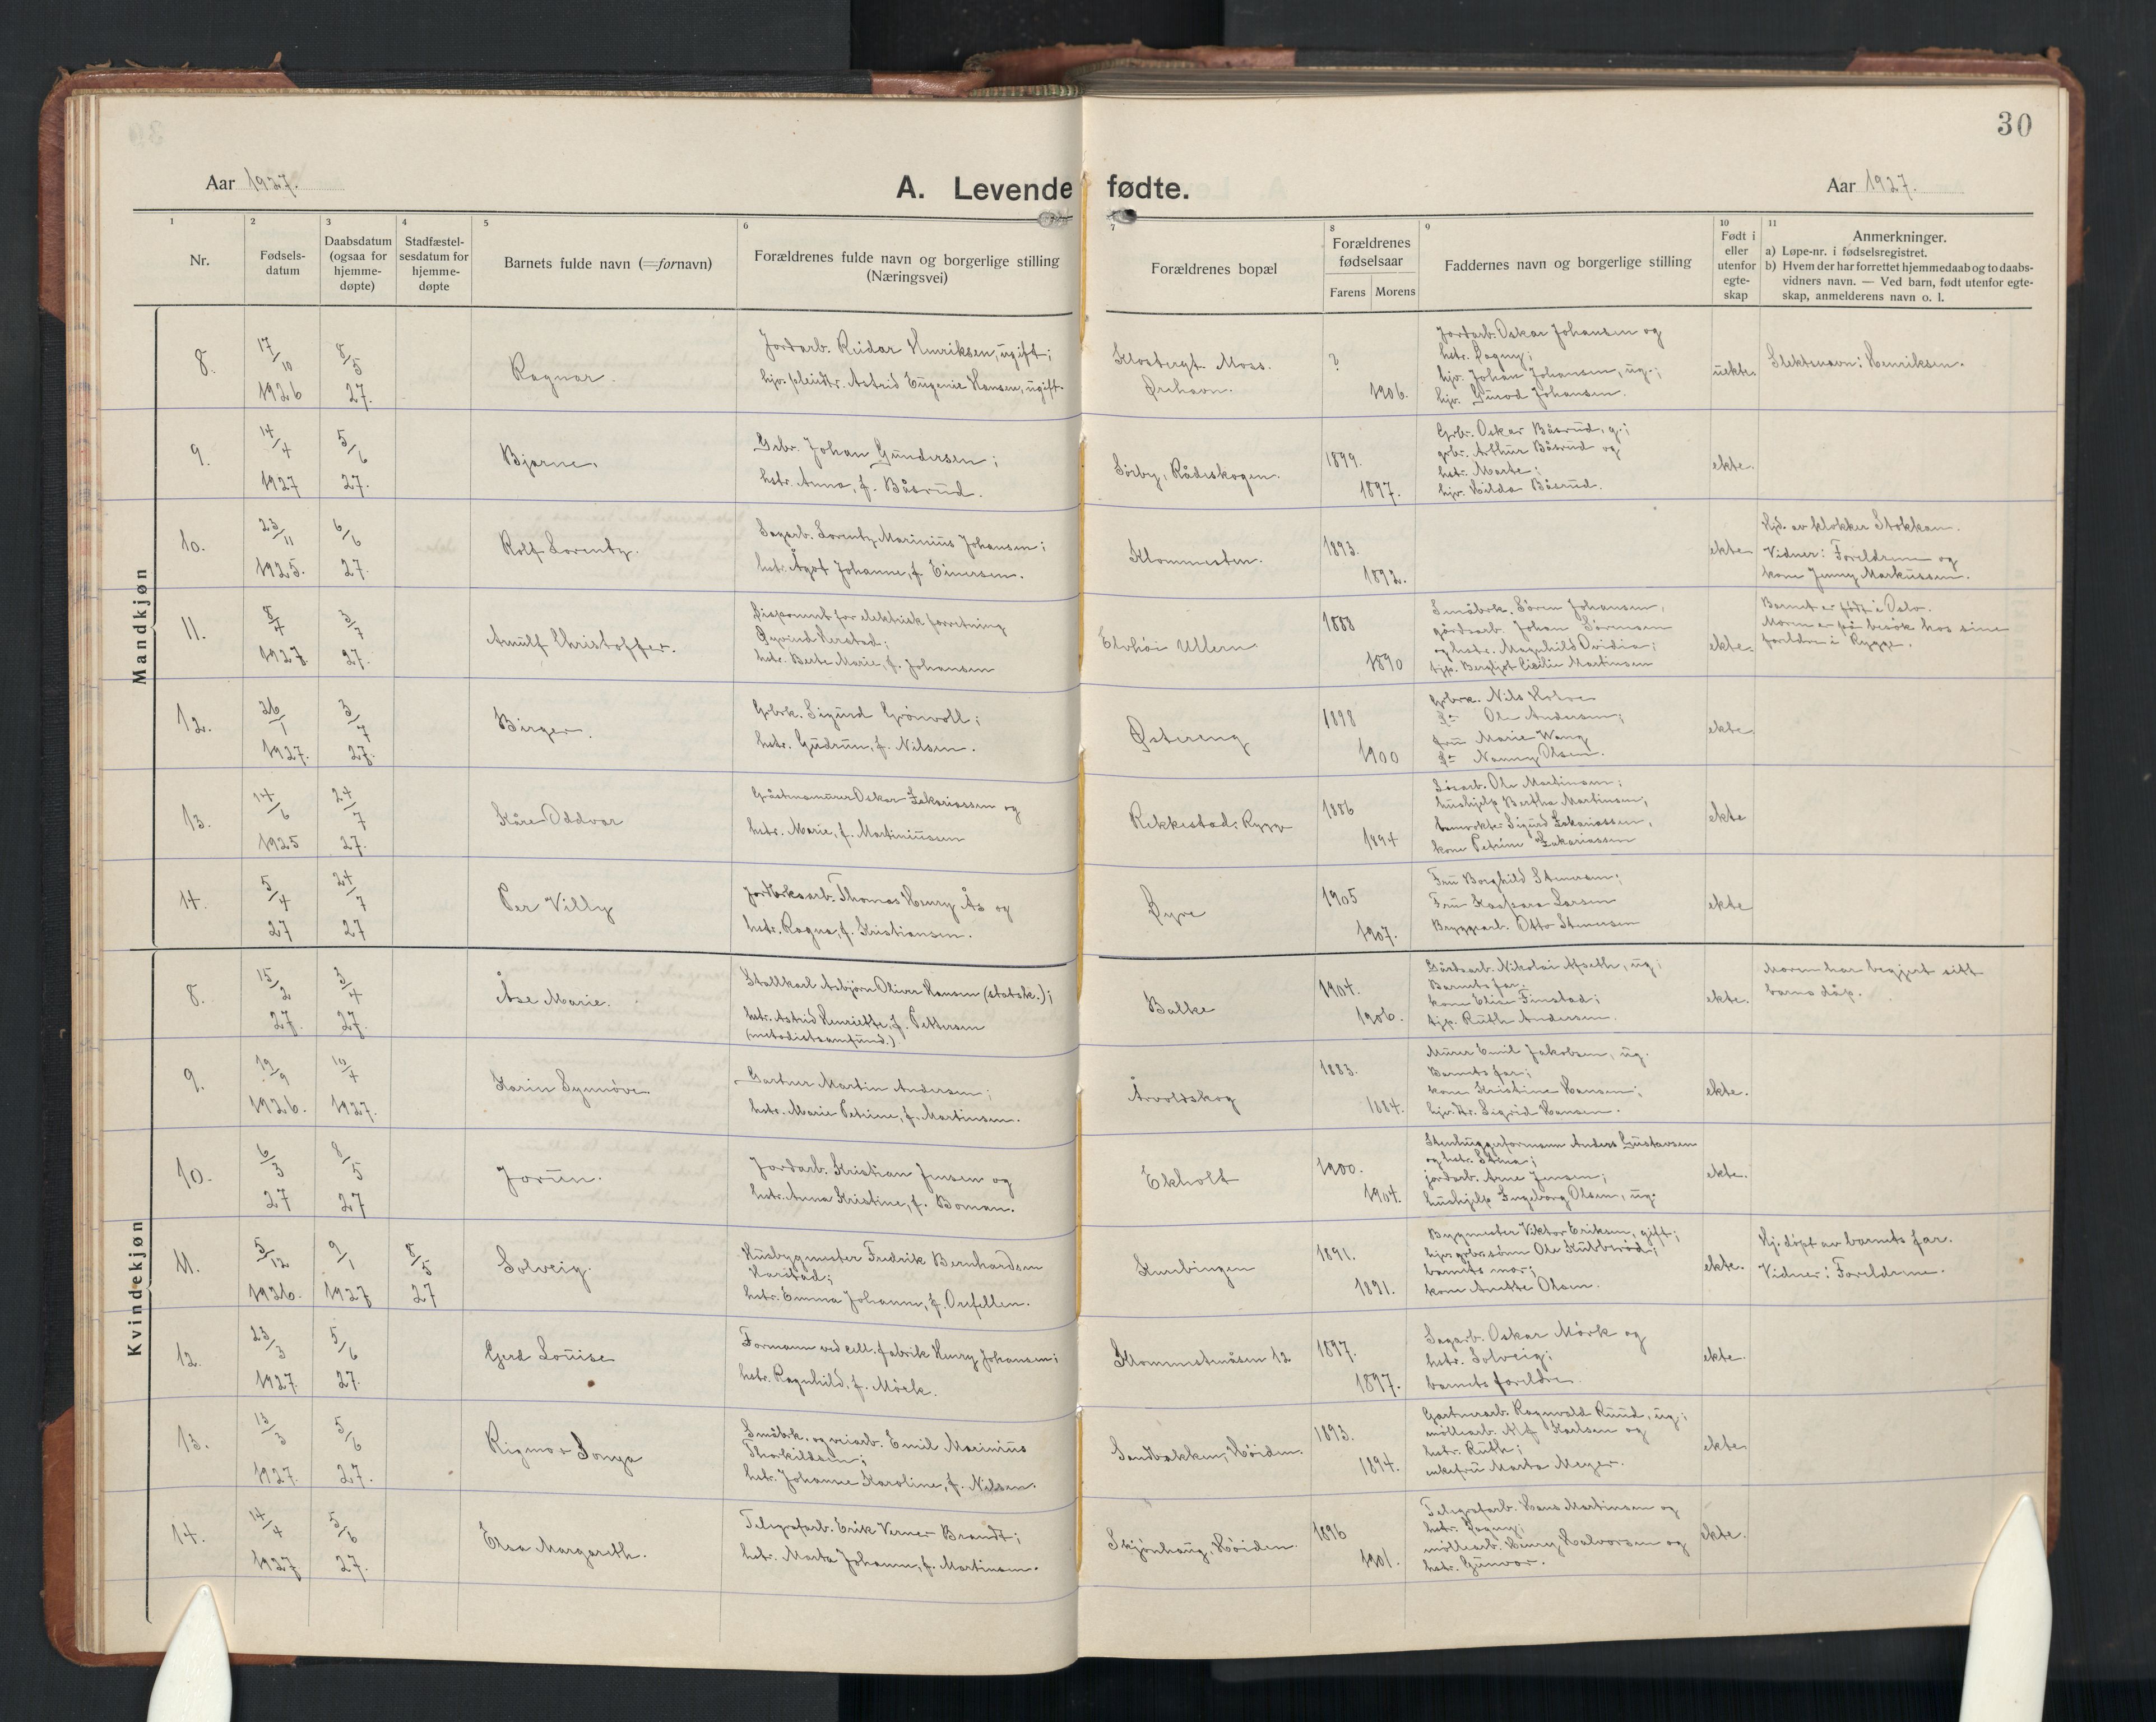 30
Aar 1927.
A. Levende fødte.
Aar 1927.
1 2 3 4 5 6 7 8 9 10 11
Nr.
Fødsels-
datum
Daabsdatum
(ogsaa for
hjemme-
døpte)
Stadfæstel-
sesdatum for
hjemme-
døpte
Barnets fulde navn (=fornavn)
Forældrenes fulde navn og borgerlige stilling
(Næringsvei)
Forældrenes bopæl
Forældrenes
fødselsaar
Farens Morens
Faddernes navn og borgerlige stilling
Født i
eller
utenfor
egte-
skap
Anmerkninger.
a) Løpe-nr. i fødselsregistret.
b) Hvem der har forrettet hjemmedaab og to daabs-
vidners navn. — Ved barn, født utenfor egte-
skap, anmelderens navn o. l.
Mandkjøn
8.
17/10
1926
8/5
27.
Ragnar.
Jordarb. Reidar Henriksen, ugift;
Astrid Eugenie Hansen, ugift.
Moss.
Ørehavn.
?
1906.
Jordarb. Oskar Johansen og
hstr. Dagny;
hjv. Johan Johansen, ug.;
hjv. Johansen.
uekte.
Slektsnavn: Henriksen.
9.
14/4
1927
5/6
27.
Bjarne.
Grbr. Johan Gundersen;
hstr. Anna, f. Båsrud.
Sørby, Rådeskogen.
1899.
1897.
Grbr. Oskar Båsrud, g.;
grbr. Arthur Båsrud og
hstr. Marte;
hjv. Hilda Båsrud.
ekte.
10.
23/11
1925.
6/6
27.
Rolf Lorentz.
Sagarb. Lorentz Marinius Johansen;
hstr. Ågot Johanne, f. Einersen.
Klommesten.
1893.
1892.
ekte
Hjd. av klokker Stokkan.
Vidner: Foreldrene og
kone Jenny Markussen.
11.
8/4
1927.
3/7
27.
Arnulf Christoffer.
Disponent for elektrisk forretning
Øyvind Herstad;
hstr. Berte Marie, f. Johansen
Elvhøi Ullern
1888
1890
Småbrk. Søren Johansen,
gårdsarb. Johan Sørensen
og hstr. Magnhild Ovidia;
tjp. Bergljot Cecilie Martinsen
ekte.
Barnet er født i Oslo.
Moren er på besøk hos sine
foreldre i Rygge.
12.
26/1
1927.
3/7
27.
Birger.
Grbrk. Sigurd Grönvoll;
hstr. Gudrun, f. Nilsen.
Østereng
1898
1900
grbrk. Nils Holse
Do Ole Andersen;
fru Marie Wang
Do Nanny Olsen.
ekte
13.
14/6
1925
24/7
27.
Kåre Oddvar
Oskar Zakariassen og
hstr. Marie, f. Martiniussen
Rikkestad, Rygge
1886
1894
Ole Martinsen;
hushjelp Bertha Martinsen,
Sigurd Zakariassen,
kone Petrine Zakariassen
ekte
14.
5/4
27
24/7
27
Per Villy
Thomas Henry Ås og
hstr. Ragna, f. Kristiansen.
Øyre
1905
1907.
Fru Borghild Stenersen;
Fru Kaspara Larsen
Bryggearb. Otto Stenersen
ekte
Kvindekjøn
8.
15/2
27.
3/4
27.
Åse Marie.
Stallkarl Asbjørn Oliver Hansen (statsk.);
hstr. Astrid Henriette, f. Pettersen
(metodistsamfund.)
Balke
1904.
1906.
Gårdsarb. Nikolai Aaseth, ug;
Barnets far.
kone Elise Finstad;
tjp. Ruth Andersen.
ekte.
Moren har begjert sitt
barns dåp.
9.
19/9
1926.
10/4
1927.
Karin Synnøve
Gartner Martin Andersen;
hstr. Marie Petrine, f. Martinsen.
Årvoldskog
1883.
1884.
Murer Emil Jakobsen, ug.
Barnets far;
kone Kristine Hansen;
hjv. dtr. Sigrid Hansen.
ekte.
10.
6/3
27
8/5
27
Jorun.
Jordarb. Kristian Jensen og
hstr. Anna Kristine, f. Boman.
Ekholt
1900.
1904.
Stenhuggerformann Anders Gustavsen
og hstr. Stina;
jordarb. Arne Jensen;
hushjelp Ingeborg Olsen, ug.
ekte.
11.
5/12
1926.
9/1
1927
8/5
27
Solveig.
Husbygmester Fredrik Bernhardsen
Karstad;
hstr. Emma Johanne, f. Orefellen.
Knebingen
1891.
1891.
Bygmester Viktor Eriksen, gift;
hjv. grbr.sønn Ole Kubberød;
barnets mor;
kone Anette Olsen.
ekte.
Hj. døpt av barnets far.
Vidner: Foreldrene.
12.
23/3
1927.
5/6
27.
Gerd Louise
Formann ved cell. fabrik Henry Johansen;
hstr. Ragnhild, f. Mörk.
Klommestenåsen 12
1897.
1897.
Sagarb. Oskar Mörk og
hstr. Solveig;
barnets foreldre.
ekte.
13.
13/3
1927.
5/6
27.
Rigmor Sonya
Småbrk. og veiarb. Emil Marinius
Thorkildsen;
hstr. Johanne Karoline, f. Nilsen.
Sandbakken, Höiden.
1893.
1894.
Gartnerarb. Ragnvald Ruud, ug;
möllearb. Alf Karlsen og
hstr. Ruth;
enkefru Marta Meyer.
ekte
14.
14/4
1927
5/6
27.
Elsa Margareth.
Telegrafarb. Erik Verner Brandt;
hstr. Marta Johanne, f. Martinsen.
Skjønhaug, Höiden
1896
1901.
Telegrafarb. Hans Martinsen og
hstr. Dagny;
möllearb. Henry Halvorsen og
hstr. Gunvor.
ekte.